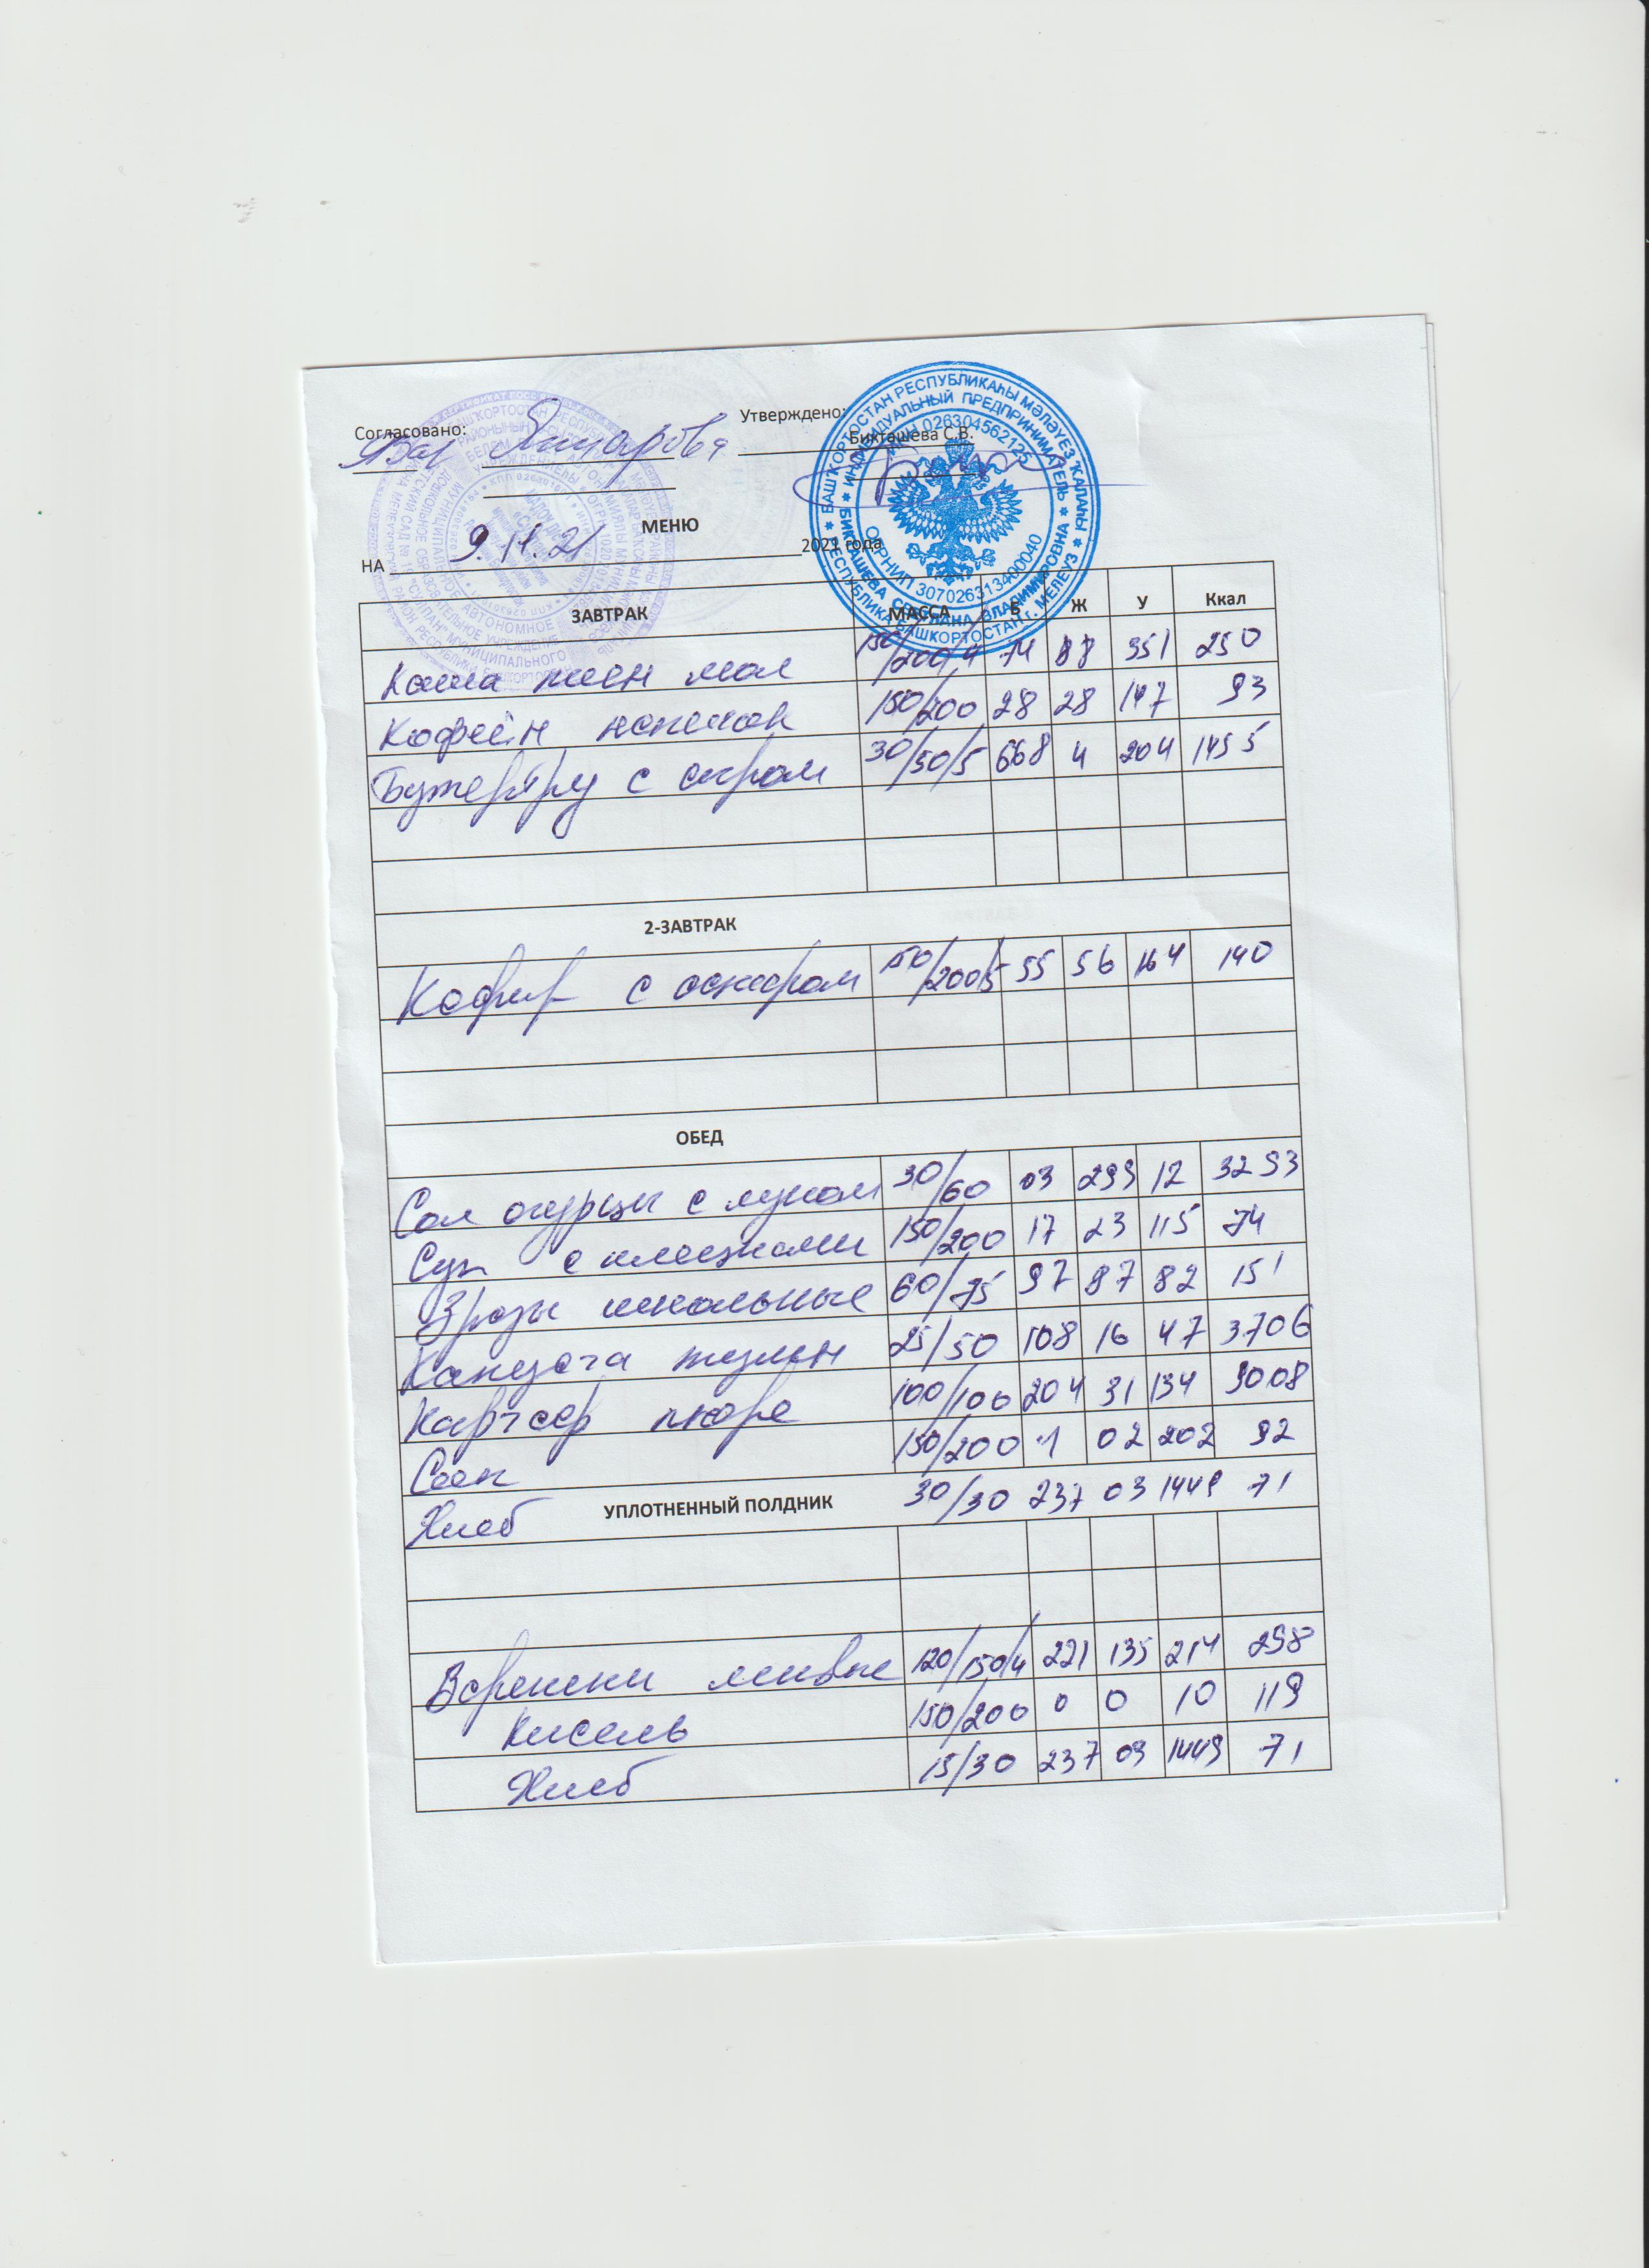 Согласовано:
Утверждено:
Бикташева С.В.
МЕНЮ
НА 9.11.21 2021 года
ЗАВТРАК МАССА Б Ж У Ккал
Каша пшен мол 150/200/4 74 88 351 250
Кофейн напиток 150/200 28 28 147 93
Бутерброд с сыром 30/50/5 668 4 204 1455
2-ЗАВТРАК
Кефир с сахаром 150/200/5 55 56 164 140
ОБЕД
Сол огурцы с луком 30/60 03 299 12 3293
Суп с клецками 150/200 17 23 115 74
Зразы школьные 60/75 97 87 82 151
Капуста тушен 25/50 108 16 47 3706
Картоф пюре 100/100 204 31 134 9008
Соок 150/200 1 02 202 92
Хлеб УПЛОТНЕННЫЙ ПОЛДНИК 30/30 237 03 1449 71
Вареники ленивые 120/150/4 221 135 214 298
Кисель 150/200 0 0 10 119
Хлеб 15/30 237 03 1449 71
БАШҠОРТОСТАН РЕСПУБЛИКАҺЫ МӘЛӘҮЕЗ ҠАЛАҺЫ
РЕСПУБЛИКА БАШКОРТОСТАН, Г. МЕЛЕУЗ
ИНДИВИДУАЛЬНЫЙ ПРЕДПРИНИМАТЕЛЬ
БИКТАШЕВА СВЕТЛАНА ВЛАДИМИРОВНА
ИНН 026304562125
ОГРНИП 307026313400040